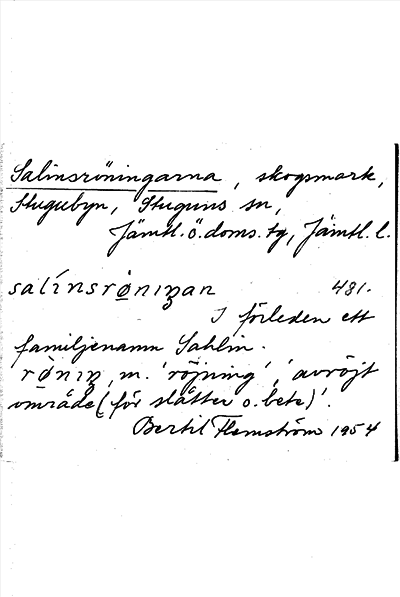 Salinsröningarna, skogsmark,
Stugubyn, Stuguns sn,
Jämtl. ö. doms. tg, Jämtl. l.
salínsrǿniŋan 481.
I förleden ett
familjenamn Sahlin.
rǿniŋ, m. 'röjning', 'avröjt
område (för slåtter o. bete)'.
Bertil Flemström 1954